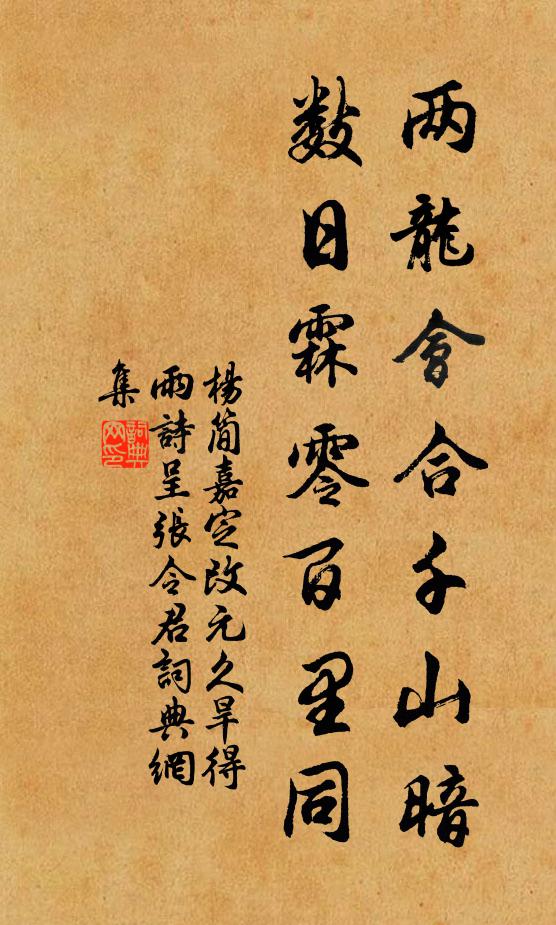 两龍會合千山暗
數日霖零百里同
楊簡嘉定改元久旱得
雨詩呈張令君詞典網
集
詞典
网印